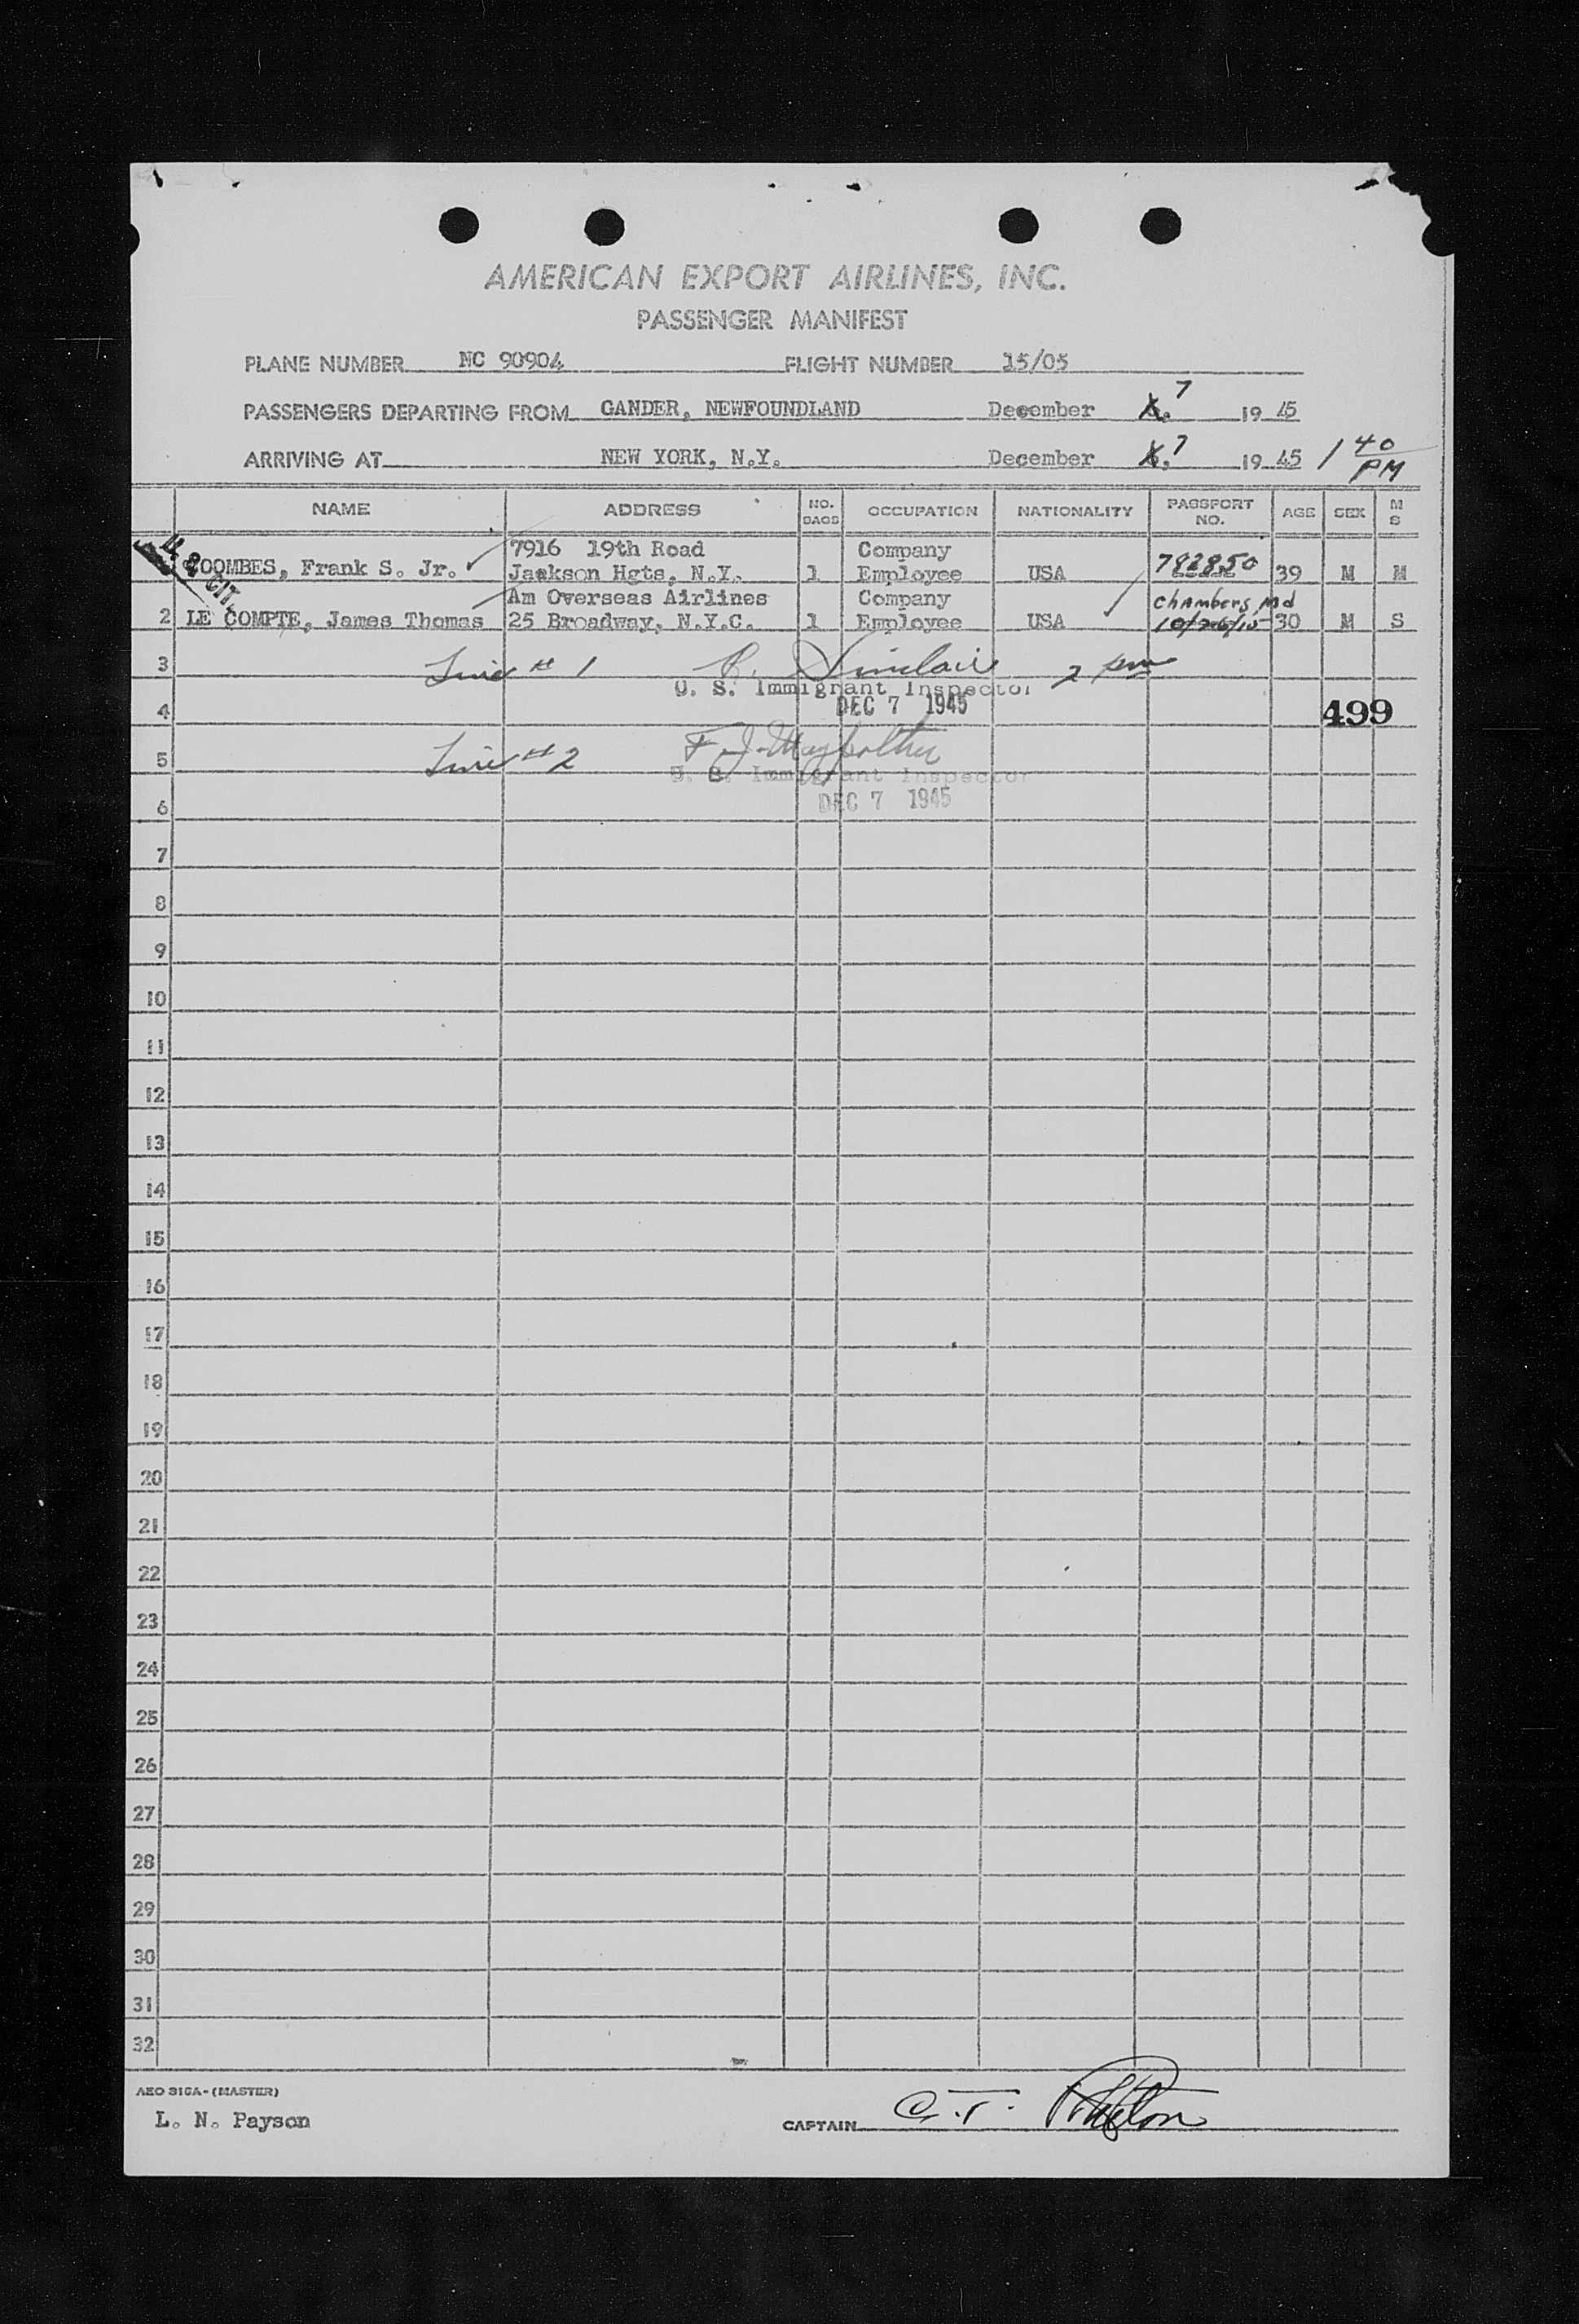 AMERICAN EXPORT AIRLINES, INC.
PASSENGER MANIFEST
PLANE NUMBER NC 90904 FLIGHT NUMBER 15/05
PASSENGERS DEPARTING FROM GANDER, NEWFOUNDLAND December 7 19 45
ARRIVING AT NEW YORK, N.Y. December 7 19 45 1 40 PM
NAME ADDRESS NO. BAGS OCCUPATION NATIONALITY PASSPORT NO. AGE SEX M S
U. S. CIT.
7916 19th Road Company
COOMBES, Frank S. Jr. Jackson Hgts, N.Y. 1 Employee USA 792850 39 M M
Am Overseas Airlines Company Chambers, Md
2 LE COMPTE, James Thomas 25 Broadway, N.Y.C. 1 Employee USA 10/26/15 30 M S
3 Line # 1 R. Sinclair 2 pm
U. S. Immigrant Inspector
4 DEC 7 1945 499
5 Line # 2 F. J.
U. S. Immigrant Inspector
6 DEC 7 1945
7
8
9
10
11
12
13
14
15
16
17
18
19
20
21
22
23
24
25
26
27
28
29
30
31
32
AEO 316A-(MASTER)
L. N. Payson
CAPTAIN C. T.